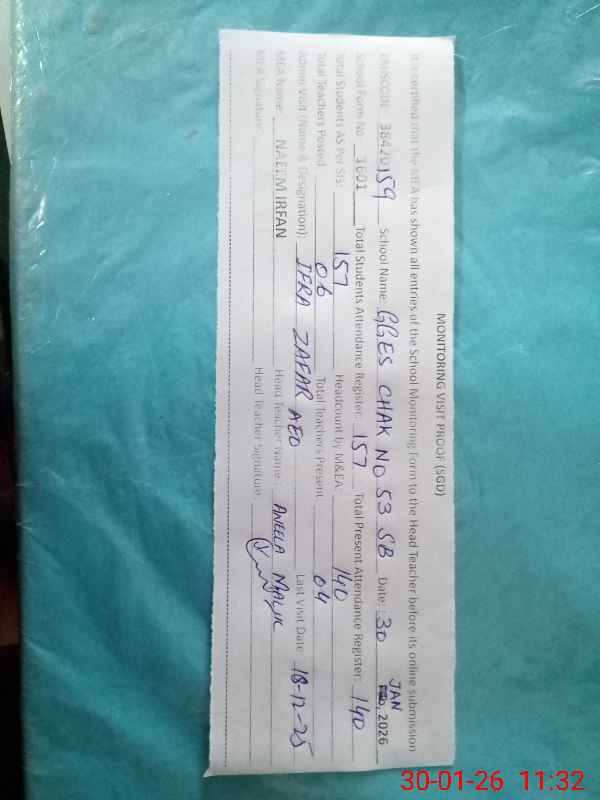 MONITORING VISIT PROOF (SGD)
It is certified that the MEA has shown all entries of the School Monitoring Form to the Head Teacher before its online submission
EMISCODE 38420159 School Name: GGES CHAK NO 53 SB Date: 30 JAN, 2026
School Form No 1601 Total Students Attendance Register: 157 Total Present Attendance Register: 140
Total Students AS Per SIS: 157 Headcount by M&EA: 140
Total Teachers Posted 06 Total Teachers Present 04
Admin Visit (Name & Designation): IFRA ZAFAR AEO Last Visit Date: 18-12-25
MEA Name: NAEEM IRFAN Head Teacher Name: ANEELA MALIK
MEA Signature: Head Teacher Signature:
30-01-26 11:32